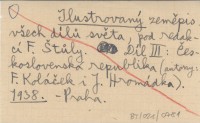 Ilustrovaný zeměpis
všech dílů světa, pod redak-
cí F. Štůly. Díl III: Čes-
koslovenská republika (autoři:
F. Koláček i J. Hromádka).
1938. - Praha.